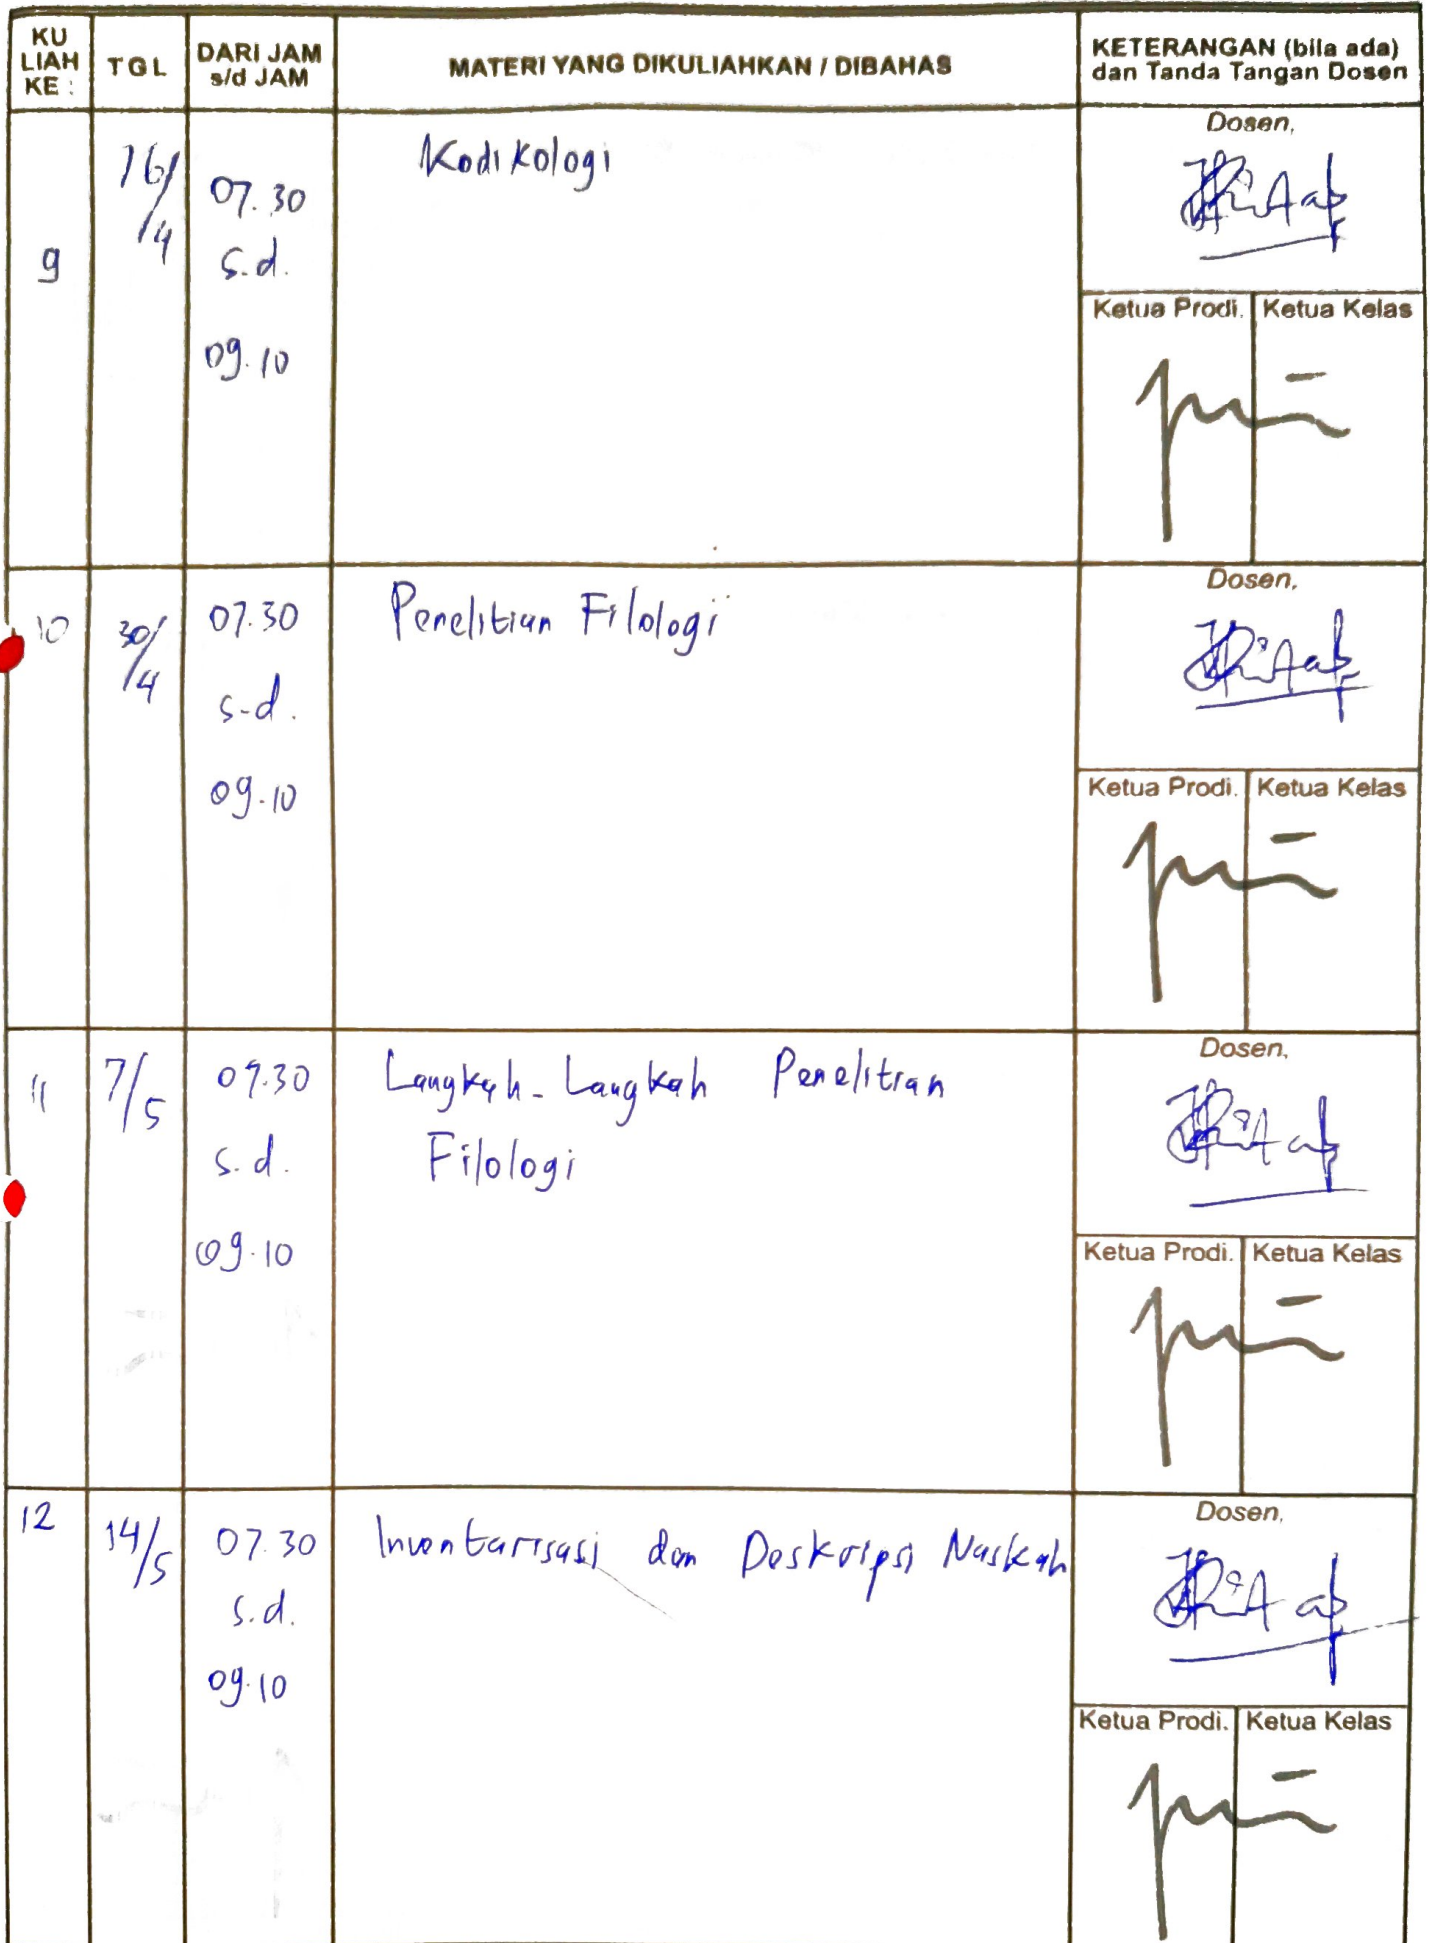 KU LIAH KE :
TGL
DARI JAM s/d JAM
MATERI YANG DIKULIAHKAN / DIBAHAS
KETERANGAN (bila ada) dan Tanda Tangan Dosen
9
16/4
07.30
s.d.
09.10
Kodikologi
Dosen,
Ketua Prodi.
Ketua Kelas
10
30/4
07.30
s-d.
09.10
Penelitian Filologi
Dosen,
Ketua Prodi.
Ketua Kelas
11
7/5
07.30
s.d.
09.10
Langkah-Langkah Penelitian
Filologi
Dosen,
Ketua Prodi.
Ketua Kelas
12
14/5
07.30
s.d.
09.10
Inventarisasi dan Deskripsi Naskah
Dosen,
Ketua Prodi.
Ketua Kelas